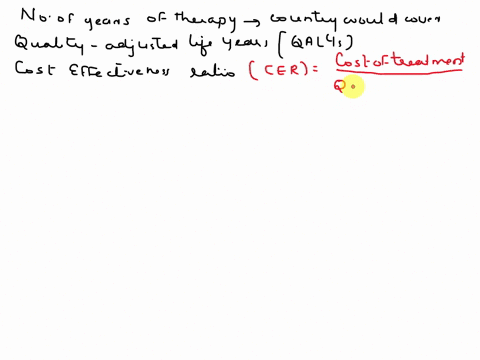 No. of years of therapy → country would cover
Quality-adjusted life years [QALYs)
Cost Effectiveness ratio (CER) = Cost of treatment
Q